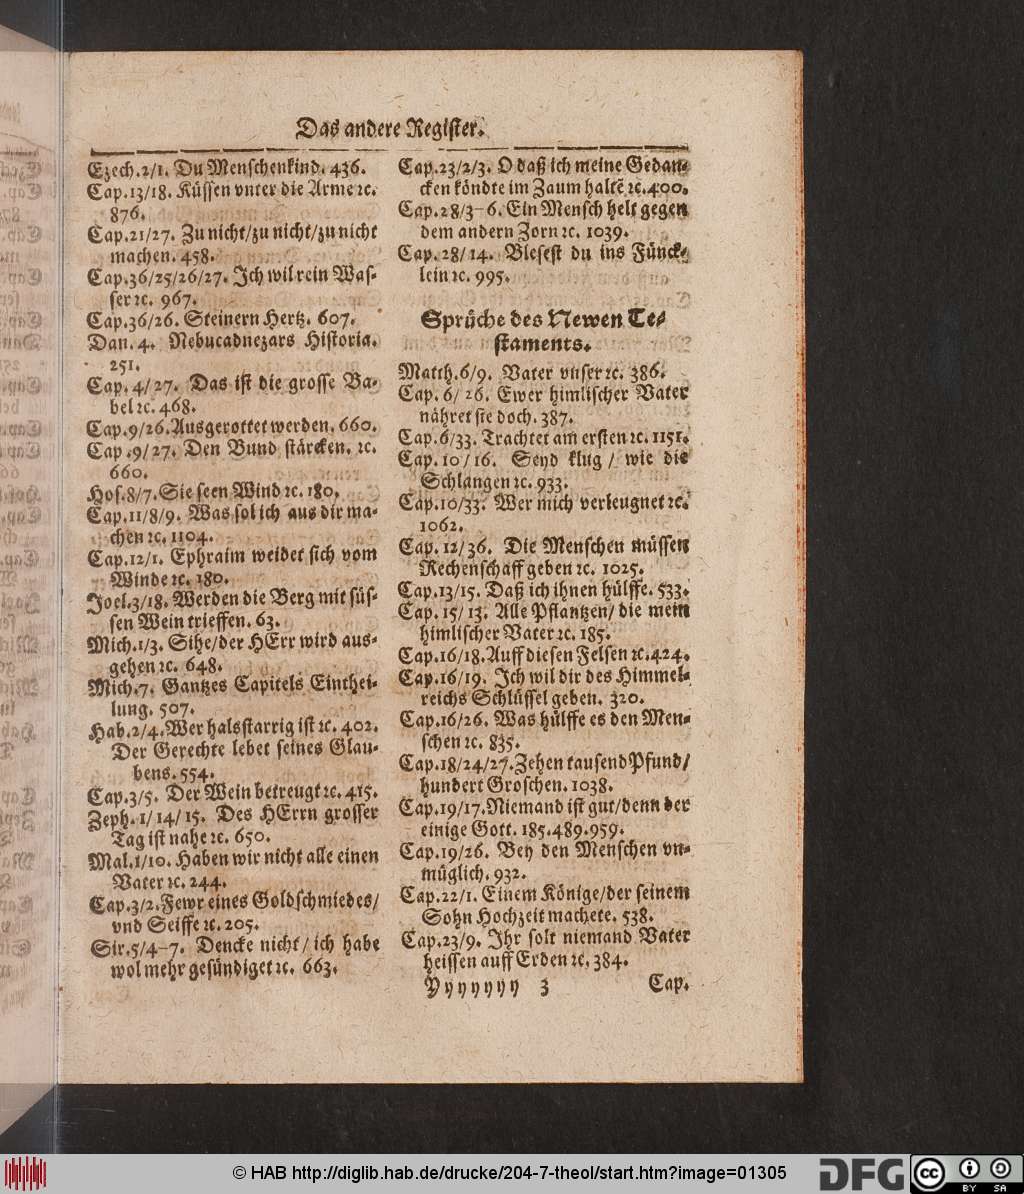 Das andere Register.
Ezech.2/1. Du Menschenkind. 436.
Cap.13/18. Küssen vnter die Arme ꝛc.
876.
Cap.21/27. Zu nicht/zu nicht/zu nicht
machen. 458.
Cap.36/25/26/27. Ich wil rein Was-
ser ꝛc. 967.
Cap.36/26. Steinern Hertz. 607.
Dan. 4. Nebucadnezars Historia.
251.
Cap. 4/27. Das ist die grosse Ba-
bel ꝛc. 468.
Cap.9/26. Ausgerottet werden. 660.
Cap.9/27. Den Bund stärcken. ꝛc.
660.
Hos.8/7. Sie seen Wind ꝛc. 180.
Cap.11/8/9. Was sol ich aus dir ma-
chen ꝛc. 1104.
Cap.12/1. Ephraim weidet sich vom
Winde ꝛc. 180.
Joel.3/18. Werden die Berg mit süs-
sen Wein trieffen. 63.
Mich.1/3. Sihe/der HErr wird aus-
gehen ꝛc. 648.
Mich.7. Gantzes Capitels Einthei-
lung. 507.
Hab.2/4. Wer halsstarrig ist ꝛc. 402.
Der Gerechte lebet seines Glau-
bens. 554.
Cap.3/5. Der Wein betreugt ꝛc. 415.
Zeph. 1/14/15. Des HErrn grosser
Tag ist nahe ꝛc. 650.
Mal.1/10. Haben wir nicht alle einen
Vater ꝛc. 244.
Cap.3/2. Fewr eines Goldschmiedes/
vnd Seiffe ꝛc. 205.
Sir.5/4-7. Dencke nicht/ ich habe
wol mehr gesündiget ꝛc. 663.
Cap.23/2/3. O daß ich meine Gedan-
cken köndte im Zaum haltẽ ꝛc. 400.
Cap.28/3-6. Ein Mensch helt gegen
dem andern Zorn ꝛc. 1039.
Cap. 28/14. Blesest du ins Fünck-
lein ꝛc. 995.
Sprüche des Newen Te-
staments.
Matth.6/9. Vater vnser ꝛc. 386.
Cap. 6/26. Ewer himlischer Vater
nähret sie doch. 387.
Cap.6/33. Trachtet am ersten ꝛc. 1151.
Cap. 10/16. Seyd klug/ wie die
Schlangen ꝛc. 933.
Cap.10/33. Wer mich verleugnet ꝛc.
1062.
Cap. 12/36. Die Menschen müssen
Rechenschaff geben ꝛc. 1025.
Cap.13/15. Daß ich ihnen hülffe. 533.
Cap. 15/13. Alle Pflantzen/ die mein
himlischer Vater ꝛc. 185.
Cap.16/18. Auff diesen Felsen ꝛc. 424.
Cap.16/19. Ich wil dir des Himmel-
reichs Schlüssel geben. 320.
Cap.16/26. Was hülffe es den Men-
schen ꝛc. 835.
Cap.18/24/27. Zehen tausend Pfund/
hundert Groschen. 1038.
Cap.19/17. Niemand ist gut/denn der
einige Gott. 185.489.959.
Cap.19/26. Bey den Menschen vn-
müglich. 932.
Cap.22/1. Einem Könige/der seinem
Sohn Hochzeit machete. 538.
Cap.23/9. Ihr solt niemand Vater
heissen auff Erden ꝛc. 384.
Yyyyyyy 3 Cap.
© HAB http://diglib.hab.de/drucke/204-7-theol/start.htm?image=01305
DFG
cc BY SA